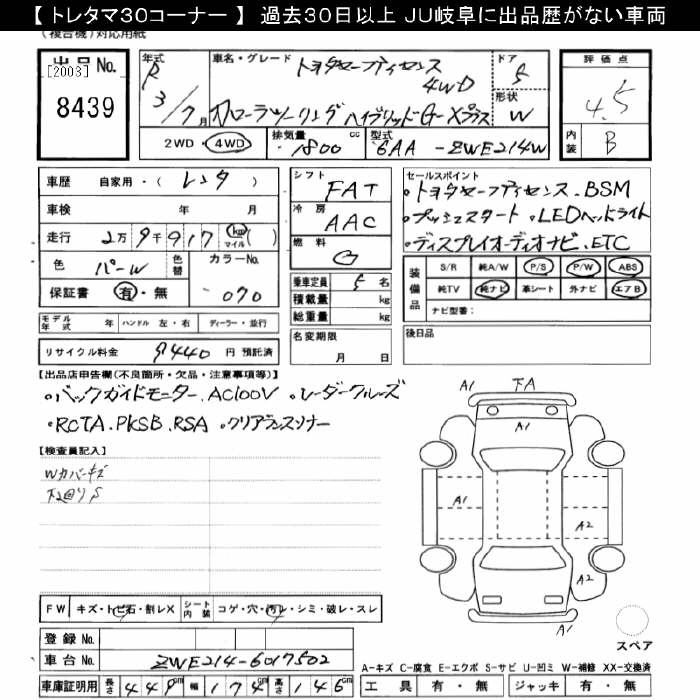 【 トレタマ30コーナー 】 過去30日以上 JU岐阜に出品歴がない車両
(複合機)対応用紙
出品No.
[2003]
8439
年式 R 3/7月
車名・グレード トヨタセーフティセンス 4WD
カローラツーリング ハイブリッドG-Xプラス
ドア 5
形状 W
評価点
4.5
内装 B
2WD・4WD
排気量 1800 cc
型式 6AA - ZWE214W
車歴 自家用・( レンタ )
車検 年 月
走行 2万9千917 km マイル ( )
色 パールW 色替 カラーNo. 070
保証書 有・無
シフト FAT
冷房 AAC
燃料 G
乗車定員 5名
積載量 kg
総重量 kg
名変期限 月 日
セールスポイント
・トヨタセーフティセンス.BSM
・プッシュスタート ・LEDヘッドライト
・ディスプレイオーディオナビ.ETC
装備品 S/R 純A/W P/S P/W ABS
純TV 純ナビ 革シート 外ナビ エアB
ナビ型番:
モデル年式 年 ハンドル 左・右 ディーラー・並行
リサイクル料金 9440 円 預託済
後日品
【出品店申告欄(不良箇所・欠品・注意事項等)】
・バックガイドモニター.AC100V ・レーダークルーズ
・RCTA.PKSB.RSA ・クリアランスソナー
【検査員記入】
Wカバーキズ
下廻りS
A1 FA
A1
A1
A2
A2
A1
スペア
FW キズ・トビ石・割レX シート内装 コゲ・穴・汚レ・シミ・破レ・スレ
登録No.
車台No. ZWE214-6017502
車庫証明用 長さ 449cm 幅 174cm 高さ 146cm
A-キズ C-腐食 E-エクボ S-サビ U-凹ミ W-補修 XX-交換済
工具 有・無 ジャッキ 有・無